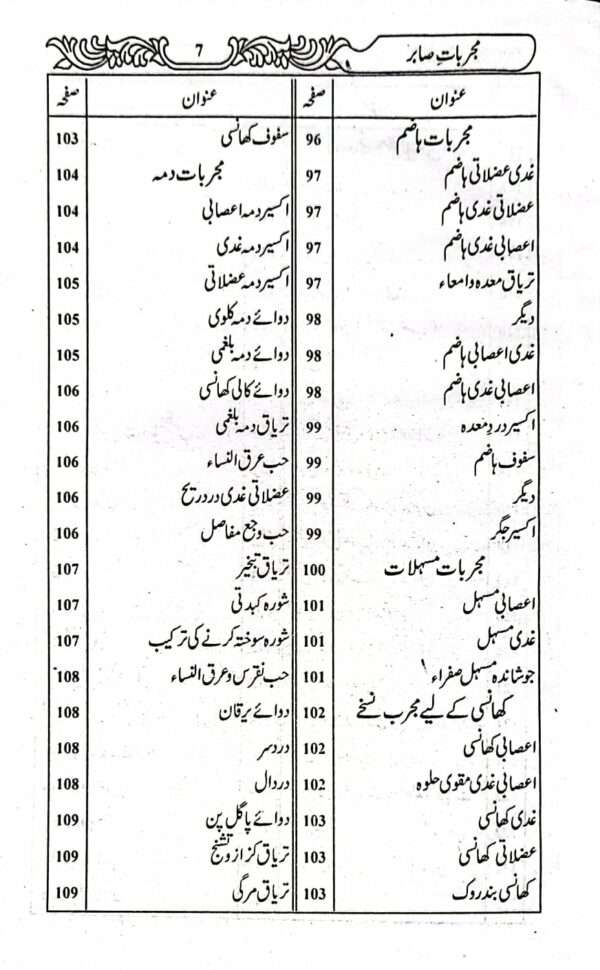 مجربات صابر
7
عنوان صفحہ
مجربات ہاضم 96
غدی عضلاتی ہاضم 97
عضلاتی غدی ہاضم 97
اعصابی غدی ہاضم 97
تریاق معدہ وامعاء 97
دیگر 98
غدی اعصابی ہاضم 98
اعصابی غدی ہاضم 98
اکسیر درد معدہ 99
سفوف ہاضم 99
دیگر 99
اکسیر جگر 99
مجربات مسہلات 100
اعصابی مسہل 101
غدی مسہل 101
جوشاندہ مسہل صفراء 101
کھانسی کے لیے مجرب نسخے 102
اعصابی کھانسی 102
اعصابی غدی مقوی حلوہ 102
غدی کھانسی 103
عضلاتی کھانسی 103
کھانسی بند روک 103
عنوان صفحہ
سفوف کھانسی 103
مجربات دمہ 104
اکسیر دمہ اعصابی 104
اکسیر دمہ غدی 104
اکسیر دمہ عضلاتی 105
دوائے دمہ کلوی 105
دوائے دمہ بلغمی 105
دوائے کالی کھانسی 106
تریاق دمہ بلغمی 106
حب عرق النساء 106
عضلاتی غدی درد ریح 106
حب وجع مفاصل 106
تریاق تبخیر 107
شورہ کبدتی 107
شورہ سوختہ کرنے کی ترکیب 107
حب نقرس و عرق النساء 108
دوائے یرقان 108
درد سر 108
درد دال 108
دوائے پاگل پن 109
تریاق کزاز و تشنج 109
تریاق مرگی 109